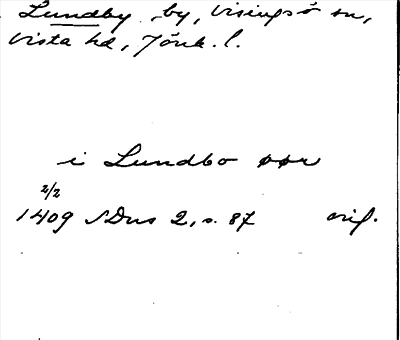 Lundby by, Visingsö sn,
Vista hd, Jönk. l.
i Lundbo øør
2/2
1409 SDns 2, s. 87 orig.